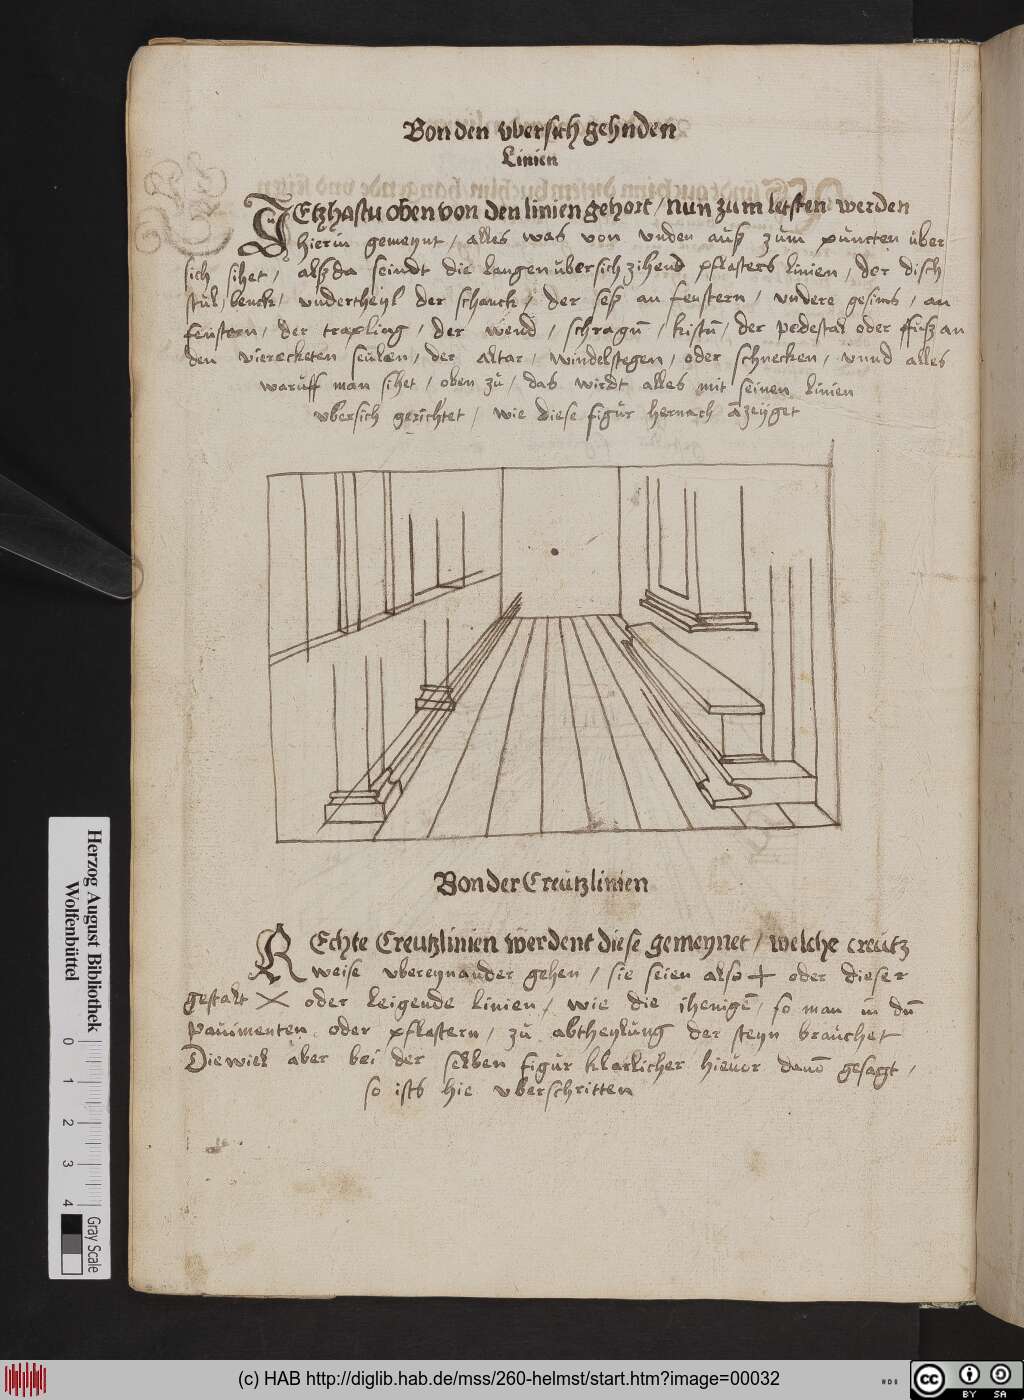 Von den vbersich gehnden
Linien
JEtzhastu oben von den linien gehört / nun zum letsten werden
hierin gemeynt / alles was von vnden auß zum puncten über
sich sihet / alß da seindt die langen über sich zihend pflasters linien / der disch
stül / benck / vndertheyl der schanck / der seß an fenstern / vndere gesims / an
fenstern / der trapling / der wend / schragen̄ / kistn̄ / der pedestal oder fuß an
den viereckten seülen / der altar / windelstegen / oder schnecken / vnnd alles
waruff man sihet / oben zü / das wirdt alles mit seinen linien
vbersich gerichtet / wie diese figür hernach āzeyget
Von der Creützlinien
REchte Creützlinien werdent diese gemeynet / welche creütz
weise vbereynander gehen / sie seien also + oder dieser
gestalt X oder leigende linien / wie die ihenigē / so man in dn̄
Pauimenten oder pflastern / zü abtheylüng der steyn brauchet
Die wiel aber bei der selben figür klarlicher hieuor dauō gesagt /
so ists hie vberschritten
Herzog August Bibliothek
Wolfenbüttel
0 1 2 3 4
Gray Scale
(c) HAB http://diglib.hab.de/mss/260-helmst/start.htm?image=00032
cc BY SA